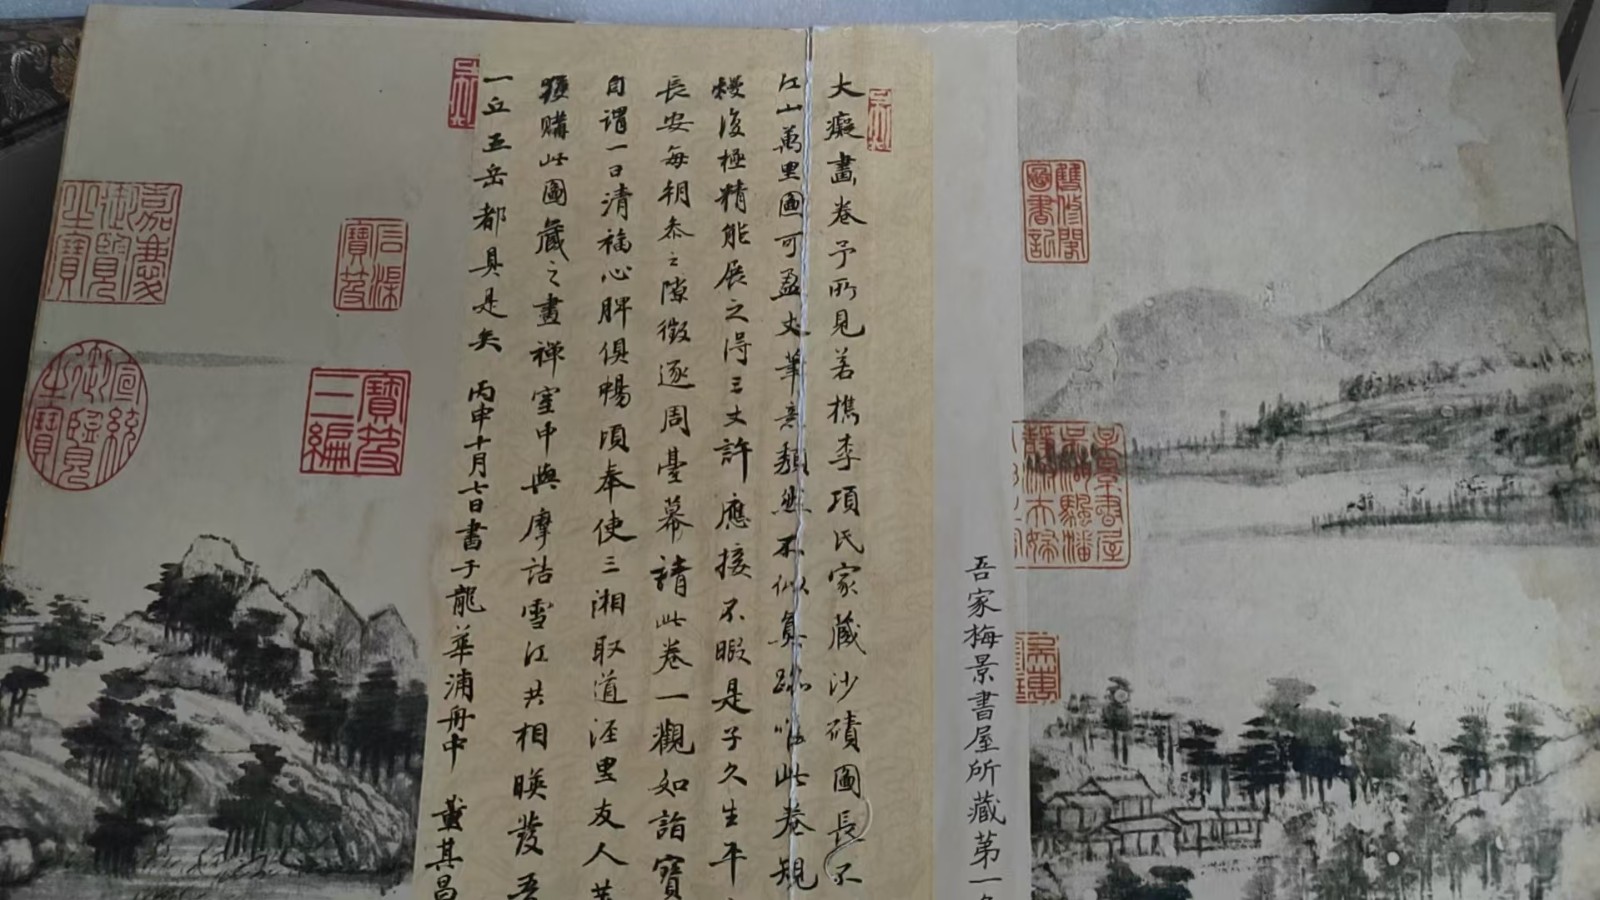 雙修閣圖書記
吾家梅景書屋所藏第一
大癡畫卷予所見若檇李項氏家藏沙磧圖長不
江山萬里圖可盈丈筆意頹然不似真跡唯此卷規
熳復極精能展之得三丈許應接不暇是子久生平
長安每朝參之隙徵逐周臺幕請此卷一觀如詣寶
自謂一日清福心脾俱暢頃奉使三湘取道涇里友人華
獲購此圖藏之畫禪室中與摩詰雪江共相暎發吾
一丘五岳都具是矣 丙申十月七日書于龍華浦舟中 董其昌
石渠寶笈
寶笈三編
嘉慶御覽之寶
宣統御覽之寶